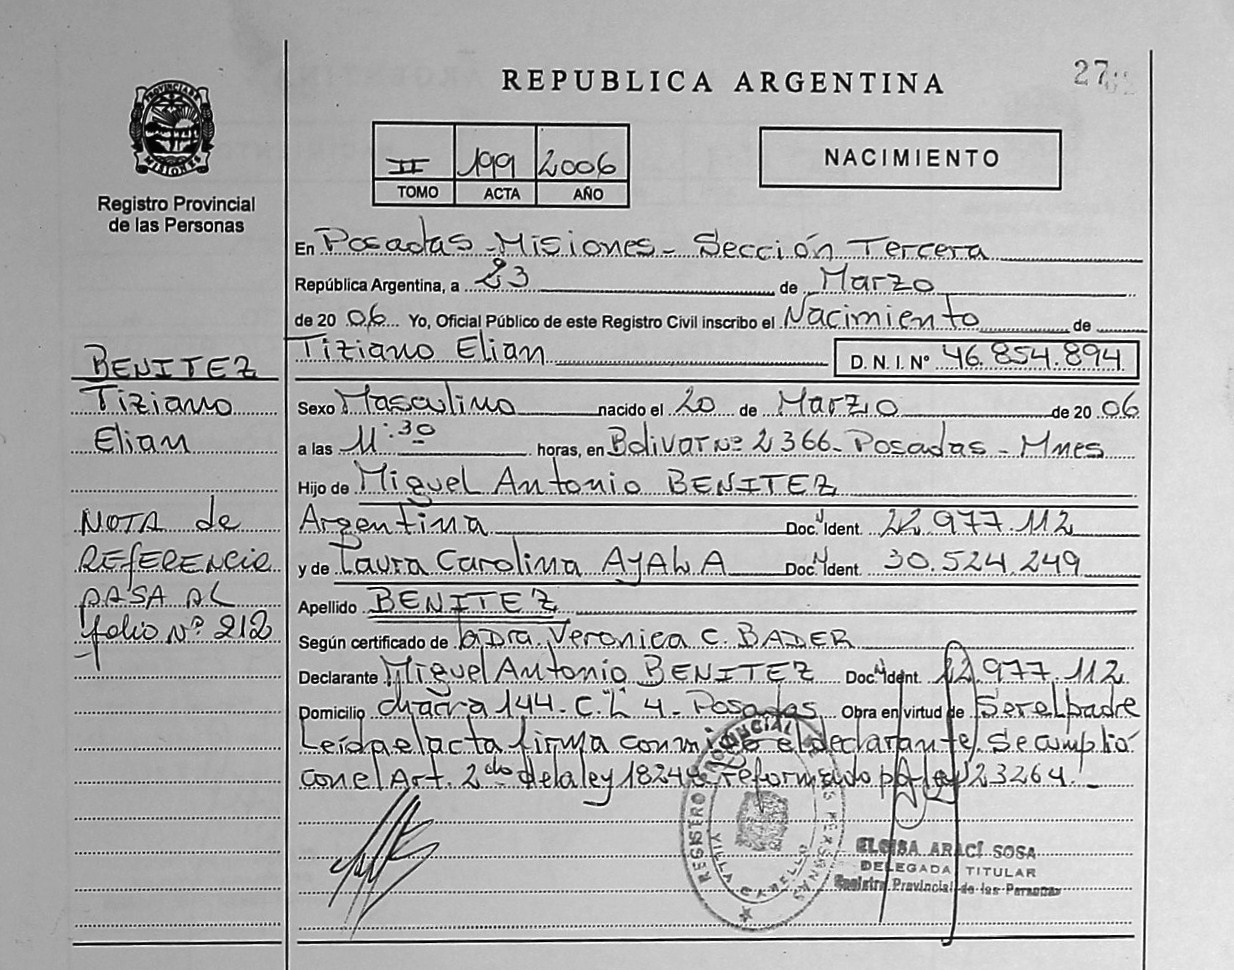 REPUBLICA ARGENTINA
27
PROVINCIA DE MISIONES
Registro Provincial
de las Personas
II 199 2006
TOMO ACTA AÑO
NACIMIENTO
En Posadas - Misiones - Sección Tercera
República Argentina, a 23 de Marzo
de 20 06 Yo, Oficial Público de este Registro Civil inscribo el Nacimiento de
Tiziano Elian D. N. I. Nº 46.854.894
BENITEZ
Tiziano
Elian
Sexo Masculino nacido el 20 de Marzo de 20 06
a las 11:30 horas, en Bolivar Nº 2366 - Posadas - Mnes
Hijo de Miguel Antonio BENITEZ
Argentina Doc. Ident. 22.977.112
y de Laura Carolina AYALA Doc. Ident. 30.524.249
Apellido BENITEZ
Según certificado de la Dra. Veronica C. BADER
Declarante Miguel Antonio BENITEZ Doc. Ident. 22.977.112
Domicilio chacra 144 - C. "L" 4 - Posadas Obra en virtud de Ser el padre
Leída el acta firma conmigo el declarante, Se cumplió
con el Art. 2do de la ley 18248 reformado por ley 23264.-
NOTA de
REFERENCIA
PASA AL
folio Nº 212
REGISTRO PROVINCIAL DE LAS PERSONAS
VILLA CABELLO
ELOISA ARACÍ SOSA
DELEGADA TITULAR
Registro Provincial de las Personas